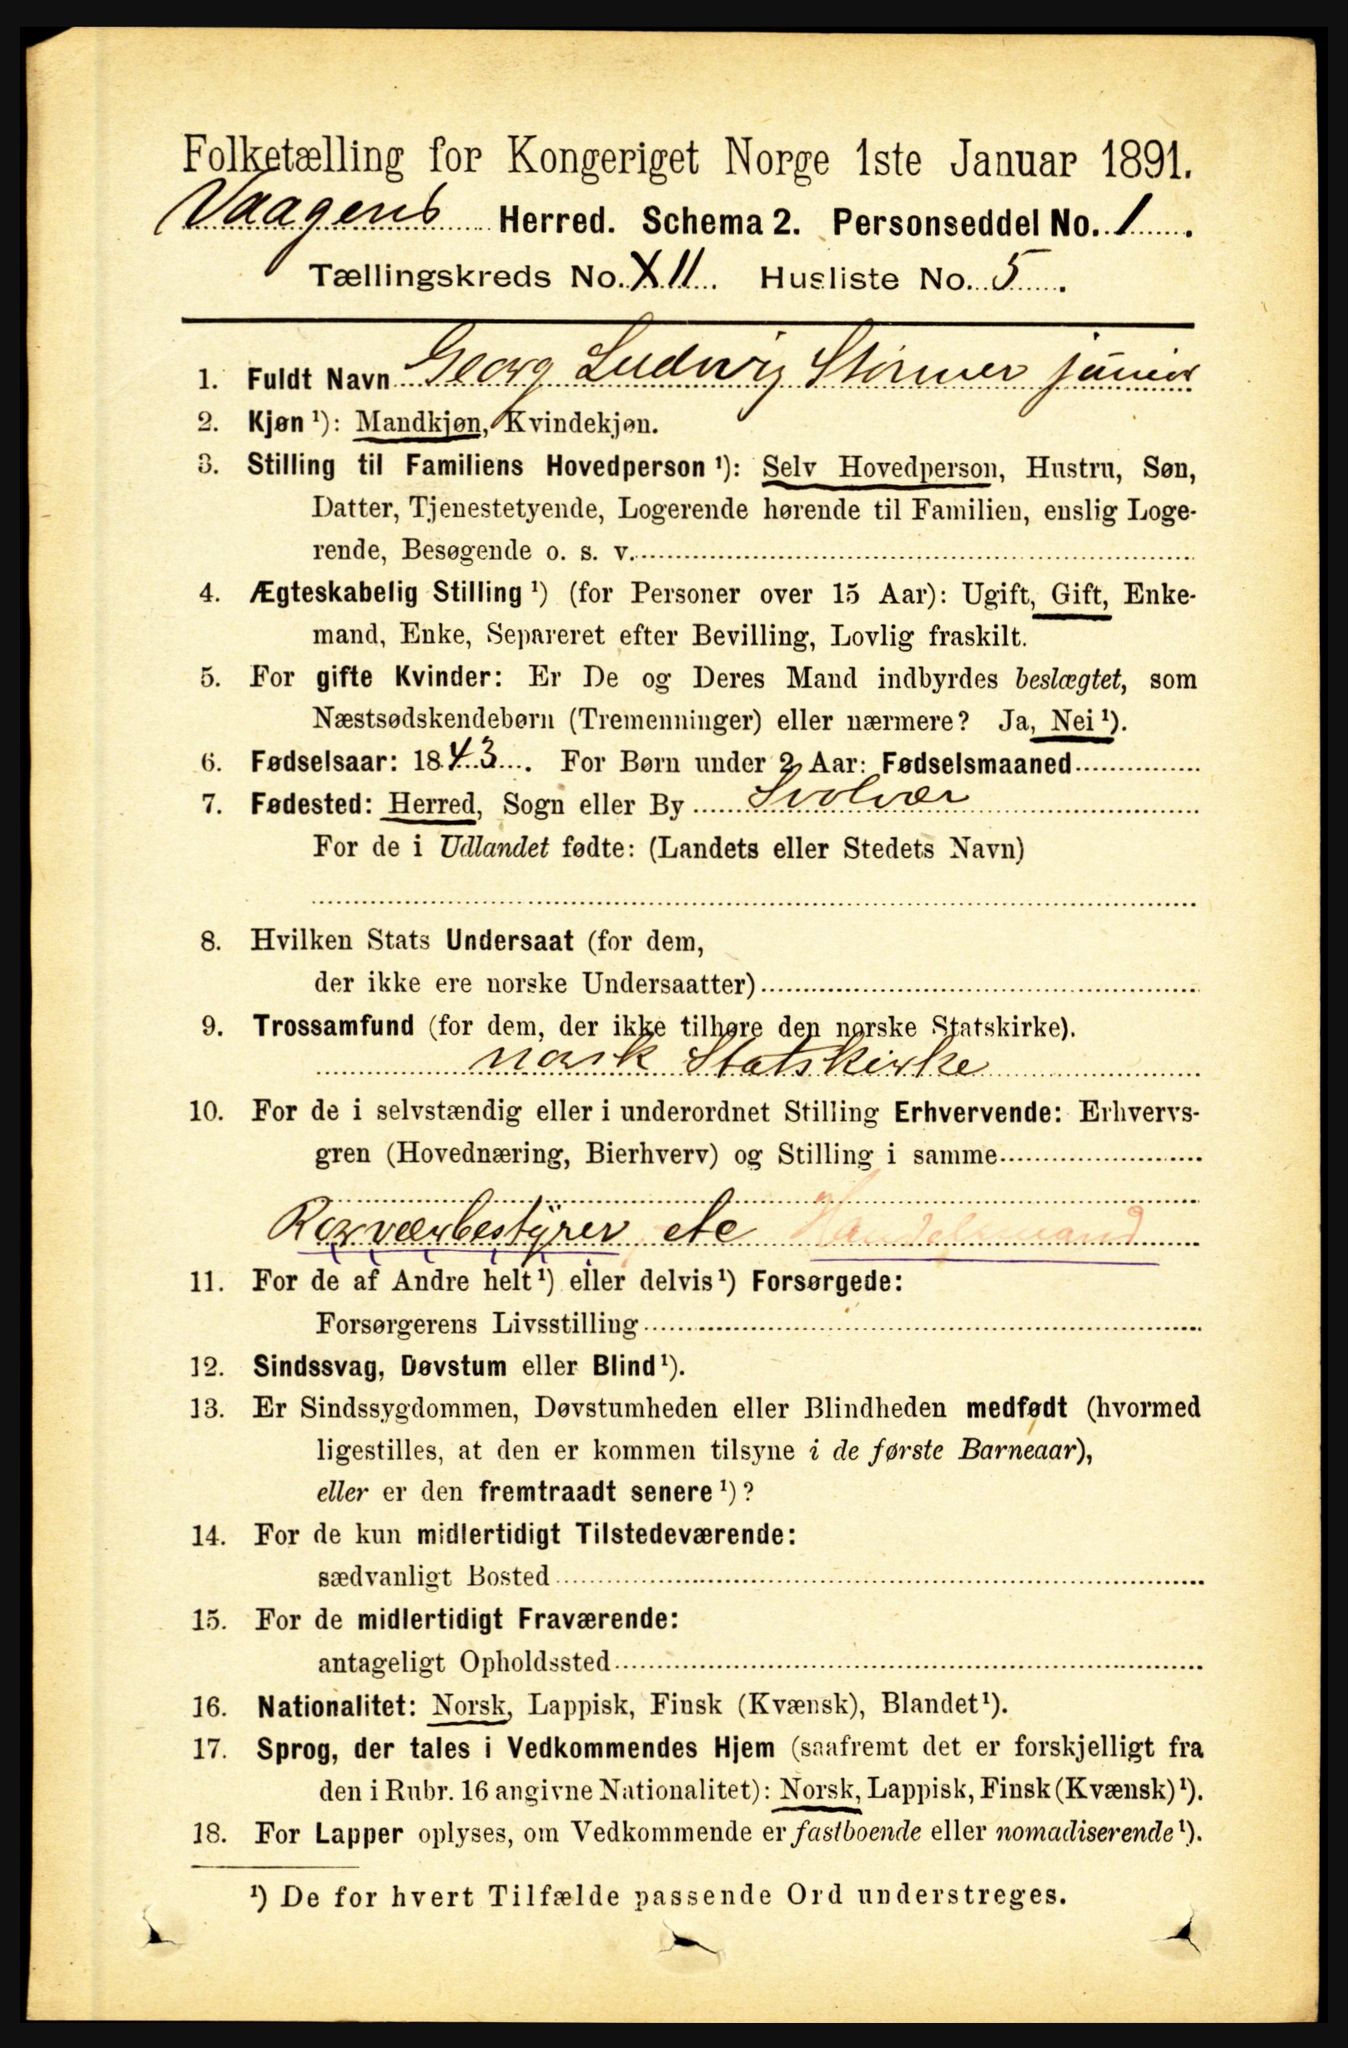 Folketælling for Kongeriget Norge 1ste Januar 1891.
Vaagens Herred. Schema 2. Personseddel No. 1.
Tællingskreds No. XII. Husliste No. 5.
1. Fuldt Navn Georg Ludvig Størmer junior
2. Kjøn ¹): Mandkjøn, Kvindekjøn.
3. Stilling til Familiens Hovedperson ¹): Selv Hovedperson, Hustru, Søn,
Datter, Tjenestetyende, Logerende hørende til Familien, enslig Loge-
rende, Besøgende o. s. v.
4. Ægteskabelig Stilling ¹) (for Personer over 15 Aar): Ugift, Gift, Enke-
mand, Enke, Separeret efter Bevilling, Lovlig fraskilt.
5. For gifte Kvinder: Er De og Deres Mand indbyrdes beslægtet, som
Næstsødskendebørn (Tremenninger) eller nærmere? Ja, Nei ¹).
6. Fødselsaar: 1843. For Børn under 2 Aar: Fødselsmaaned
7. Fødested: Herred, Sogn eller By Svolvær
For de i Udlandet fødte: (Landets eller Stedets Navn)
8. Hvilken Stats Undersaat (for dem,
der ikke ere norske Undersaatter)
9. Trossamfund (for dem, der ikke tilhøre den norske Statskirke).
norsk Statskirke
10. For de i selvstændig eller i underordnet Stilling Erhvervende: Erhvervs-
gren (Hovednæring, Bierhverv) og Stilling i samme
Rorværbestyrer, etc Handelsmand
11. For de af Andre helt ¹) eller delvis ¹) Forsørgede:
Forsørgerens Livsstilling
12. Sindssvag, Døvstum eller Blind ¹).
13. Er Sindssygdommen, Døvstumheden eller Blindheden medfødt (hvormed
ligestilles, at den er kommen tilsyne i de første Barneaar),
eller er den fremtraadt senere ¹)?
14. For de kun midlertidigt Tilstedeværende:
sædvanligt Bosted
15. For de midlertidigt Fraværende:
antageligt Opholdssted
16. Nationalitet: Norsk, Lappisk, Finsk (Kvænsk), Blandet ¹).
17. Sprog, der tales i Vedkommendes Hjem (saafremt det er forskjelligt fra
den i Rubr. 16 angivne Nationalitet): Norsk, Lappisk, Finsk (Kvænsk) ¹).
18. For Lapper oplyses, om Vedkommende er fastboende eller nomadiserende ¹).
¹) De for hvert Tilfælde passende Ord understreges.